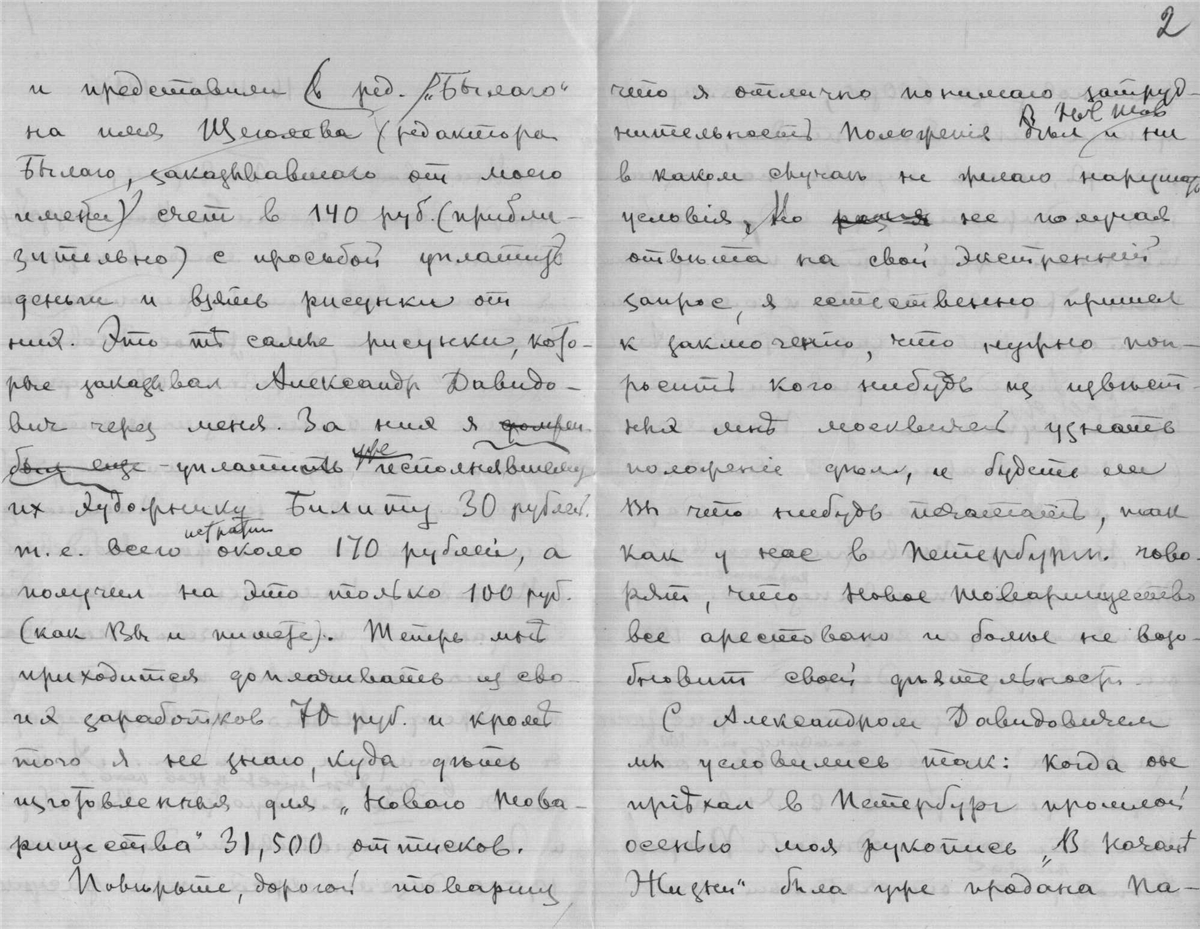 2
и представили в ред. „Былаго“
на имя Щеголева (редактора
Былаго, заказывавшаго от моего
имени) счет в 140 руб. (прибли-
зительно) с просьбой уплатить
деньги и взять рисунки от
них. Это тѣ самые рисунки, кото-
рые заказывал Александр Давидо-
вич через меня. За них я
был еще уплатить уже исполнявшему
их художнику Билиту 30 рублей.
истратил
т. е. всего около 170 рублей, а
получил на это только 100 руб.
(как Вы и пишете). Теперь мнѣ
приходится доплачивать из сво-
их заработков 70 руб. и кромѣ
того я не знаю, куда дѣть
изготовленныя для „Новаго Това-
рищества“ 31,500 оттисков.
Повѣрьте, дорогой товарищ,
что я отлично понимаю затруд-
В Нов Тов
нительность положенія дѣл и ни
в каком случаѣ не желаю нарушать
условія, Но не получая
отвѣта на свой экстренный
запрос, я естественно пришел
к заключенію, что нужно поп-
росить кого нибудь из извѣст-
ных мнѣ москвичей, узнать
положеніе дѣл, и будете ли
Вы что нибудь печатать, так
как у нас в Петербургѣ гово-
рят, что Новое товарищество
все арестовано и больше не возо-
бновит своей дѣятельности.
С Александром Давидовичем
мы условились так: когда он
пріѣхал в Петербург прошлой
осенью моя рукопись „В Началѣ
Жизни“ была уже продана Па-